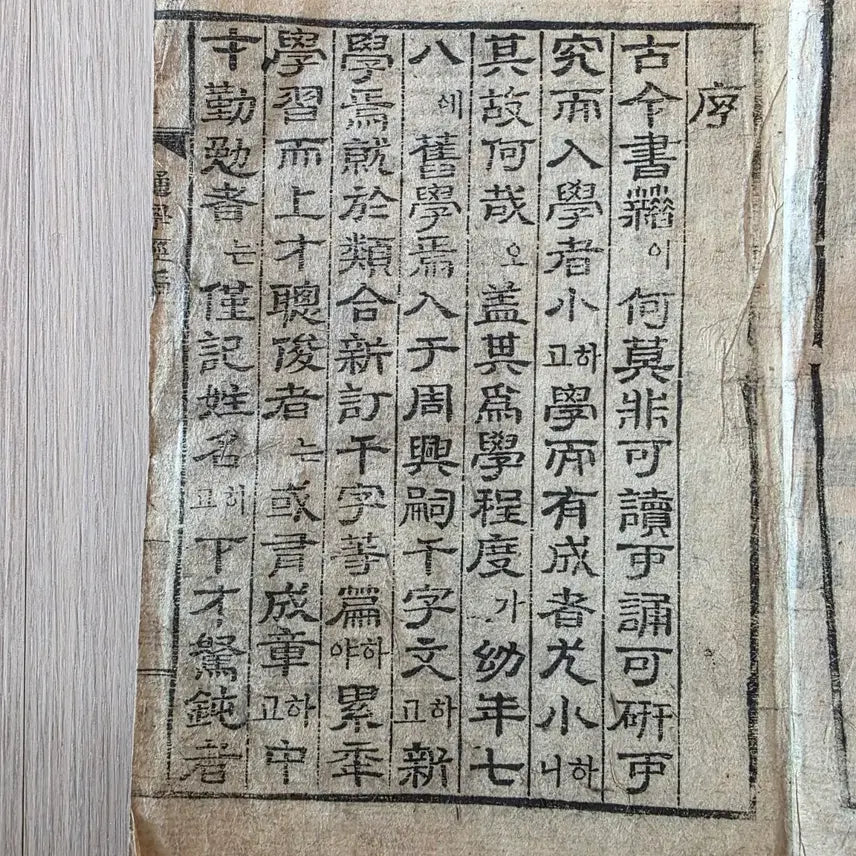 序
古今書籍이 何莫非可讀可誦可硏可
究而入學者小하고 學而有成者尤小하니
其故何哉오 盖其爲學程度가 幼年七
八세 舊學焉入于周興嗣千字文하고 新
學焉就於類合新訂千字等篇하야 累年
學習而上才聰俊者는 或成章하고 中
才勤勉者는 僅記姓名하고 下才駑鈍者
通學徑